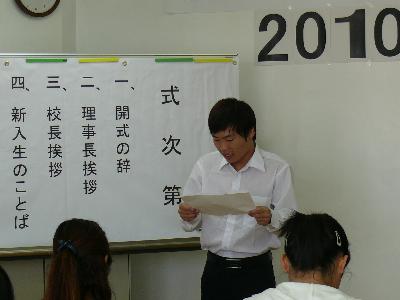 式次第
一、開式の辞
二、理事長挨拶
三、校長挨拶
四、新入生のことば
2010